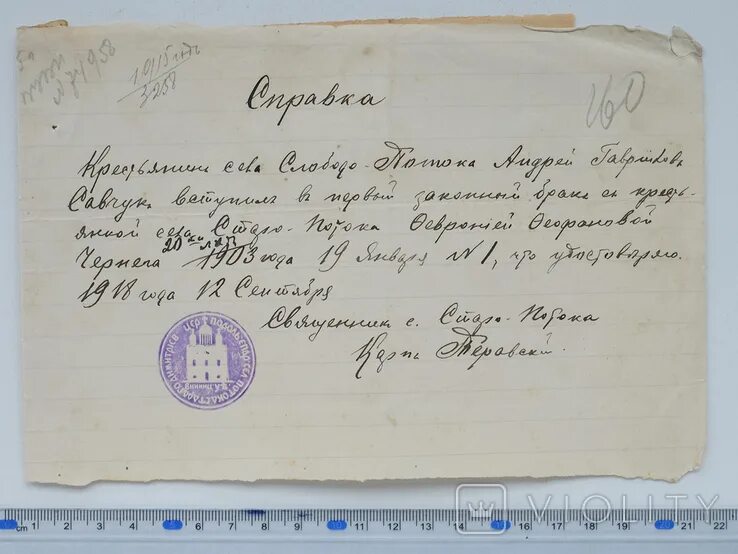 1915 годъ
3258
60
Справка
Крестьянинъ села Слободо-Потока Андрей Гавриловъ
Савчукъ вступилъ въ первый законный бракъ съ кресть-
янкой села Старо-Потока Февроніей Ѳеофановой
20-ти лѣтъ
Чернега 1903 года 19 Января № 1, что удостовѣряю.
1918 года 12 Сентября
Священникъ с. Старо-Потока
Карпъ
VIOLITY
cm 1 2 3 4 5 6 7 8 9 10 11 12 13 14 15 16 17 18 19 20 21 22